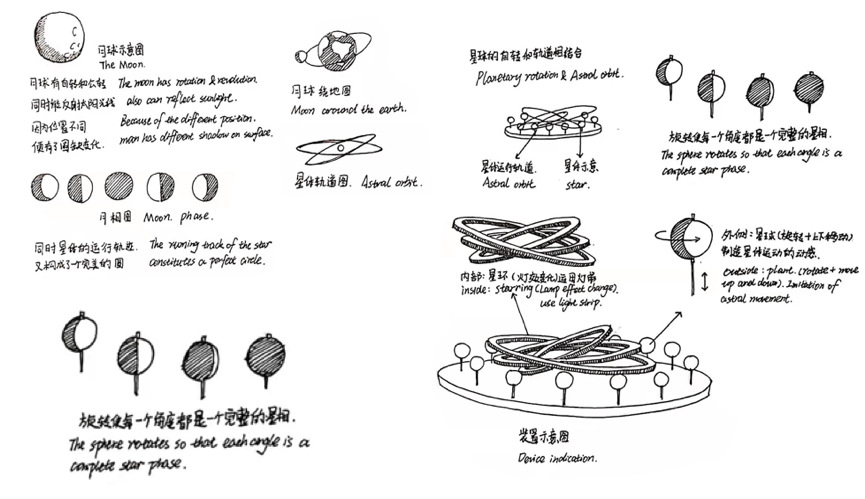 月球示意图
The Moon.
月球有自转和公转 The moon has rotation & revolution
同时能反射太阳光线 also can reflect sunlight.
因为位置不同 Because of the different position.
便有了圆缺变化. man has different shadow on surface.
月相图 Moon. phase.
同时星体的运行轨迹. The runing track of the star
又构成了个完美的圆 constitutes a perfect circle.
月球绕地图
Moon around the earth.
星体轨道图. Astral orbit.
旋转使每一个角度都是一个完整的星相.
The sphere rotates so that each angle is a
complete star phase.
星球的自转和轨道相结合
Planetary rotation & Astral orbit.
星体运行轨道. 星体示意.
Astral orbit star.
旋转使每一个角度都是一个完整的星相.
The sphere rotates so that each angle is a
complete star phase.
内部: 星环 (灯效变化)运用灯带
inside: starring (Lamp effect change).
use light strip.
外侧: 星球 (旋转+上下移动)
制造星体运动的动感.
outside: plant. (rotate + move
up and down). Imitation of
astral movement.
装置示意图
Device indication.